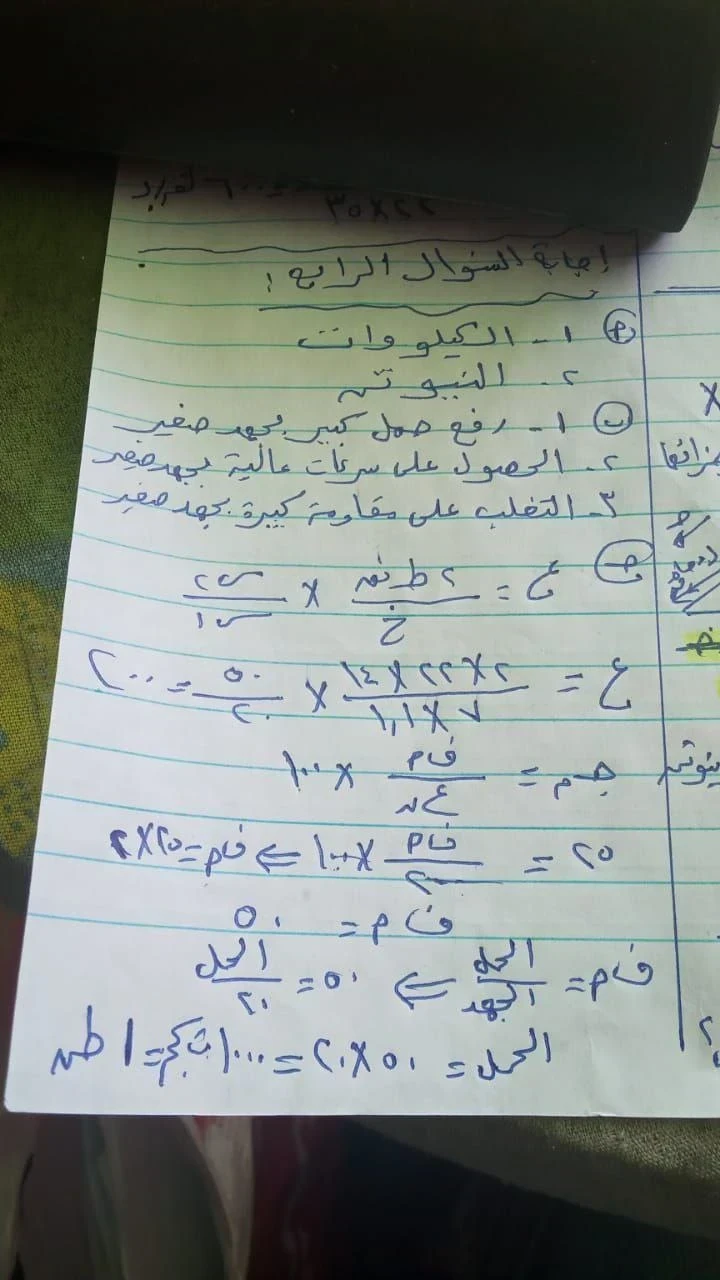 ٢٢×٣٥
إجابة السؤال الرابع :
(أ) ١- الكيلو وات
٢- النيوتن
(ب) ١- رفع حمل كبير بجهد صغير
٢- الحصول على سرعات عالية بجهد صغير
٣- التغلب على مقاومة كبيرة بجهد صغير
(ج) ع = ٢ ط نق / خ × س٢ / س١
ع = ٢×٢٢×١٤ / ٧×١,١ × ٥٠ / ٢٠ = ٢٠٠
جـ م = ف م / ع ن × ١٠٠
٢٥ = ف م / ٢٠٠ × ١٠٠ ⇐ ف م = ٢٥×٢
ف م = ٥٠
ف م = الحمل / الجهد ⇐ ٥٠ = الحمل / ٢٠
الحمل = ٥٠×٢٠ = ١٠٠٠ ث كجم = ١ طن